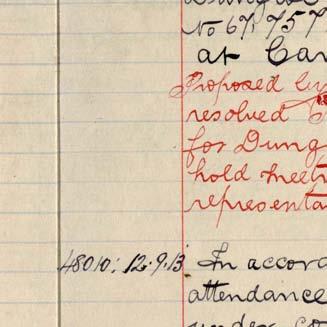 No 67, 757
at Car
Proposed by
resolved
for Dung
hold meeti
representa
48010: 12.9.13 In accord
attendance
under co